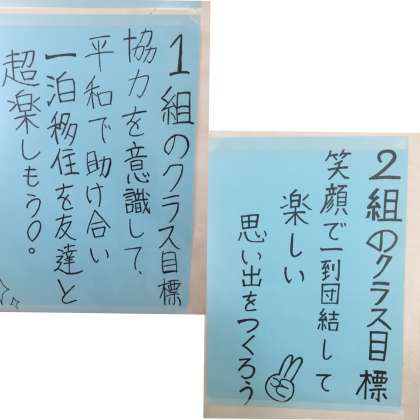 1組のクラス目標
協力を意識して、
平和で助け合い
一泊移住を友達と
超楽しもう○。
2組のクラス目標
笑顔で一到団結して
楽しい
思い出をつくろう